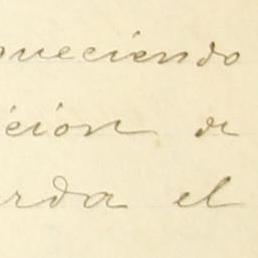 queciendo
ición de
arda el